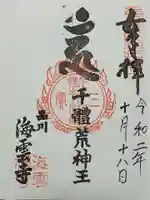 奉拝
令和二年
十月十八日
千體荒神王
品川
海雲寺